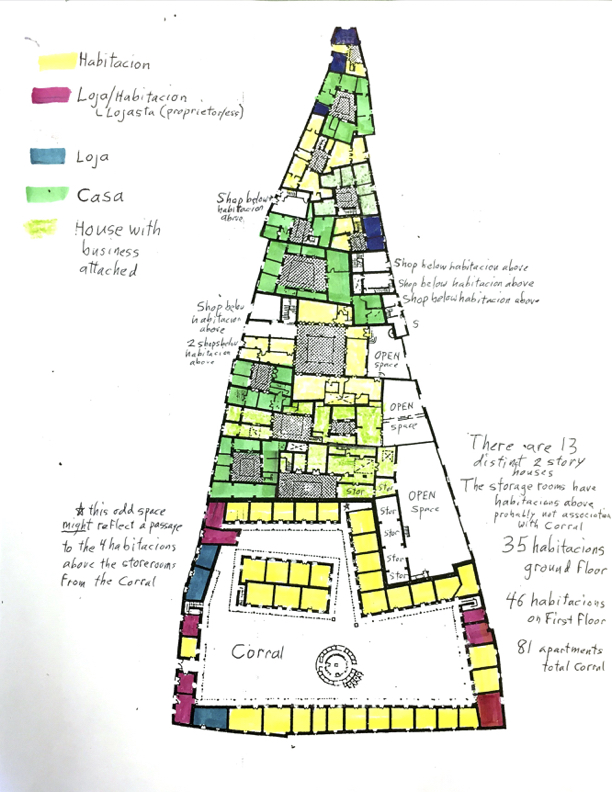 Habitacion
Loja/Habitacion
Lojasta (proprietor/ess)
Loja
Casa
House with
business
attached
Shop below
habitacion
above.
Shop below habitacion above
Shop below habitacion above
Shop below habitacion above
S
Shop below
habitacion
above
2 shops below
habitacion
above
OPEN
space
OPEN
space
OPEN
Space
Stor
Stor
Stor
Stor
Stor
Stor
There are 13
distinct 2 story
houses
The storage rooms have
habitacions above
probably not association
with Corral
35 habitacions
ground Floor
46 habitacions
on First Floor
81 apartments
total Corral
☆ this odd space
might reflect a passage
to the 4 habitacions
above the storerooms
From the Corral
Corral